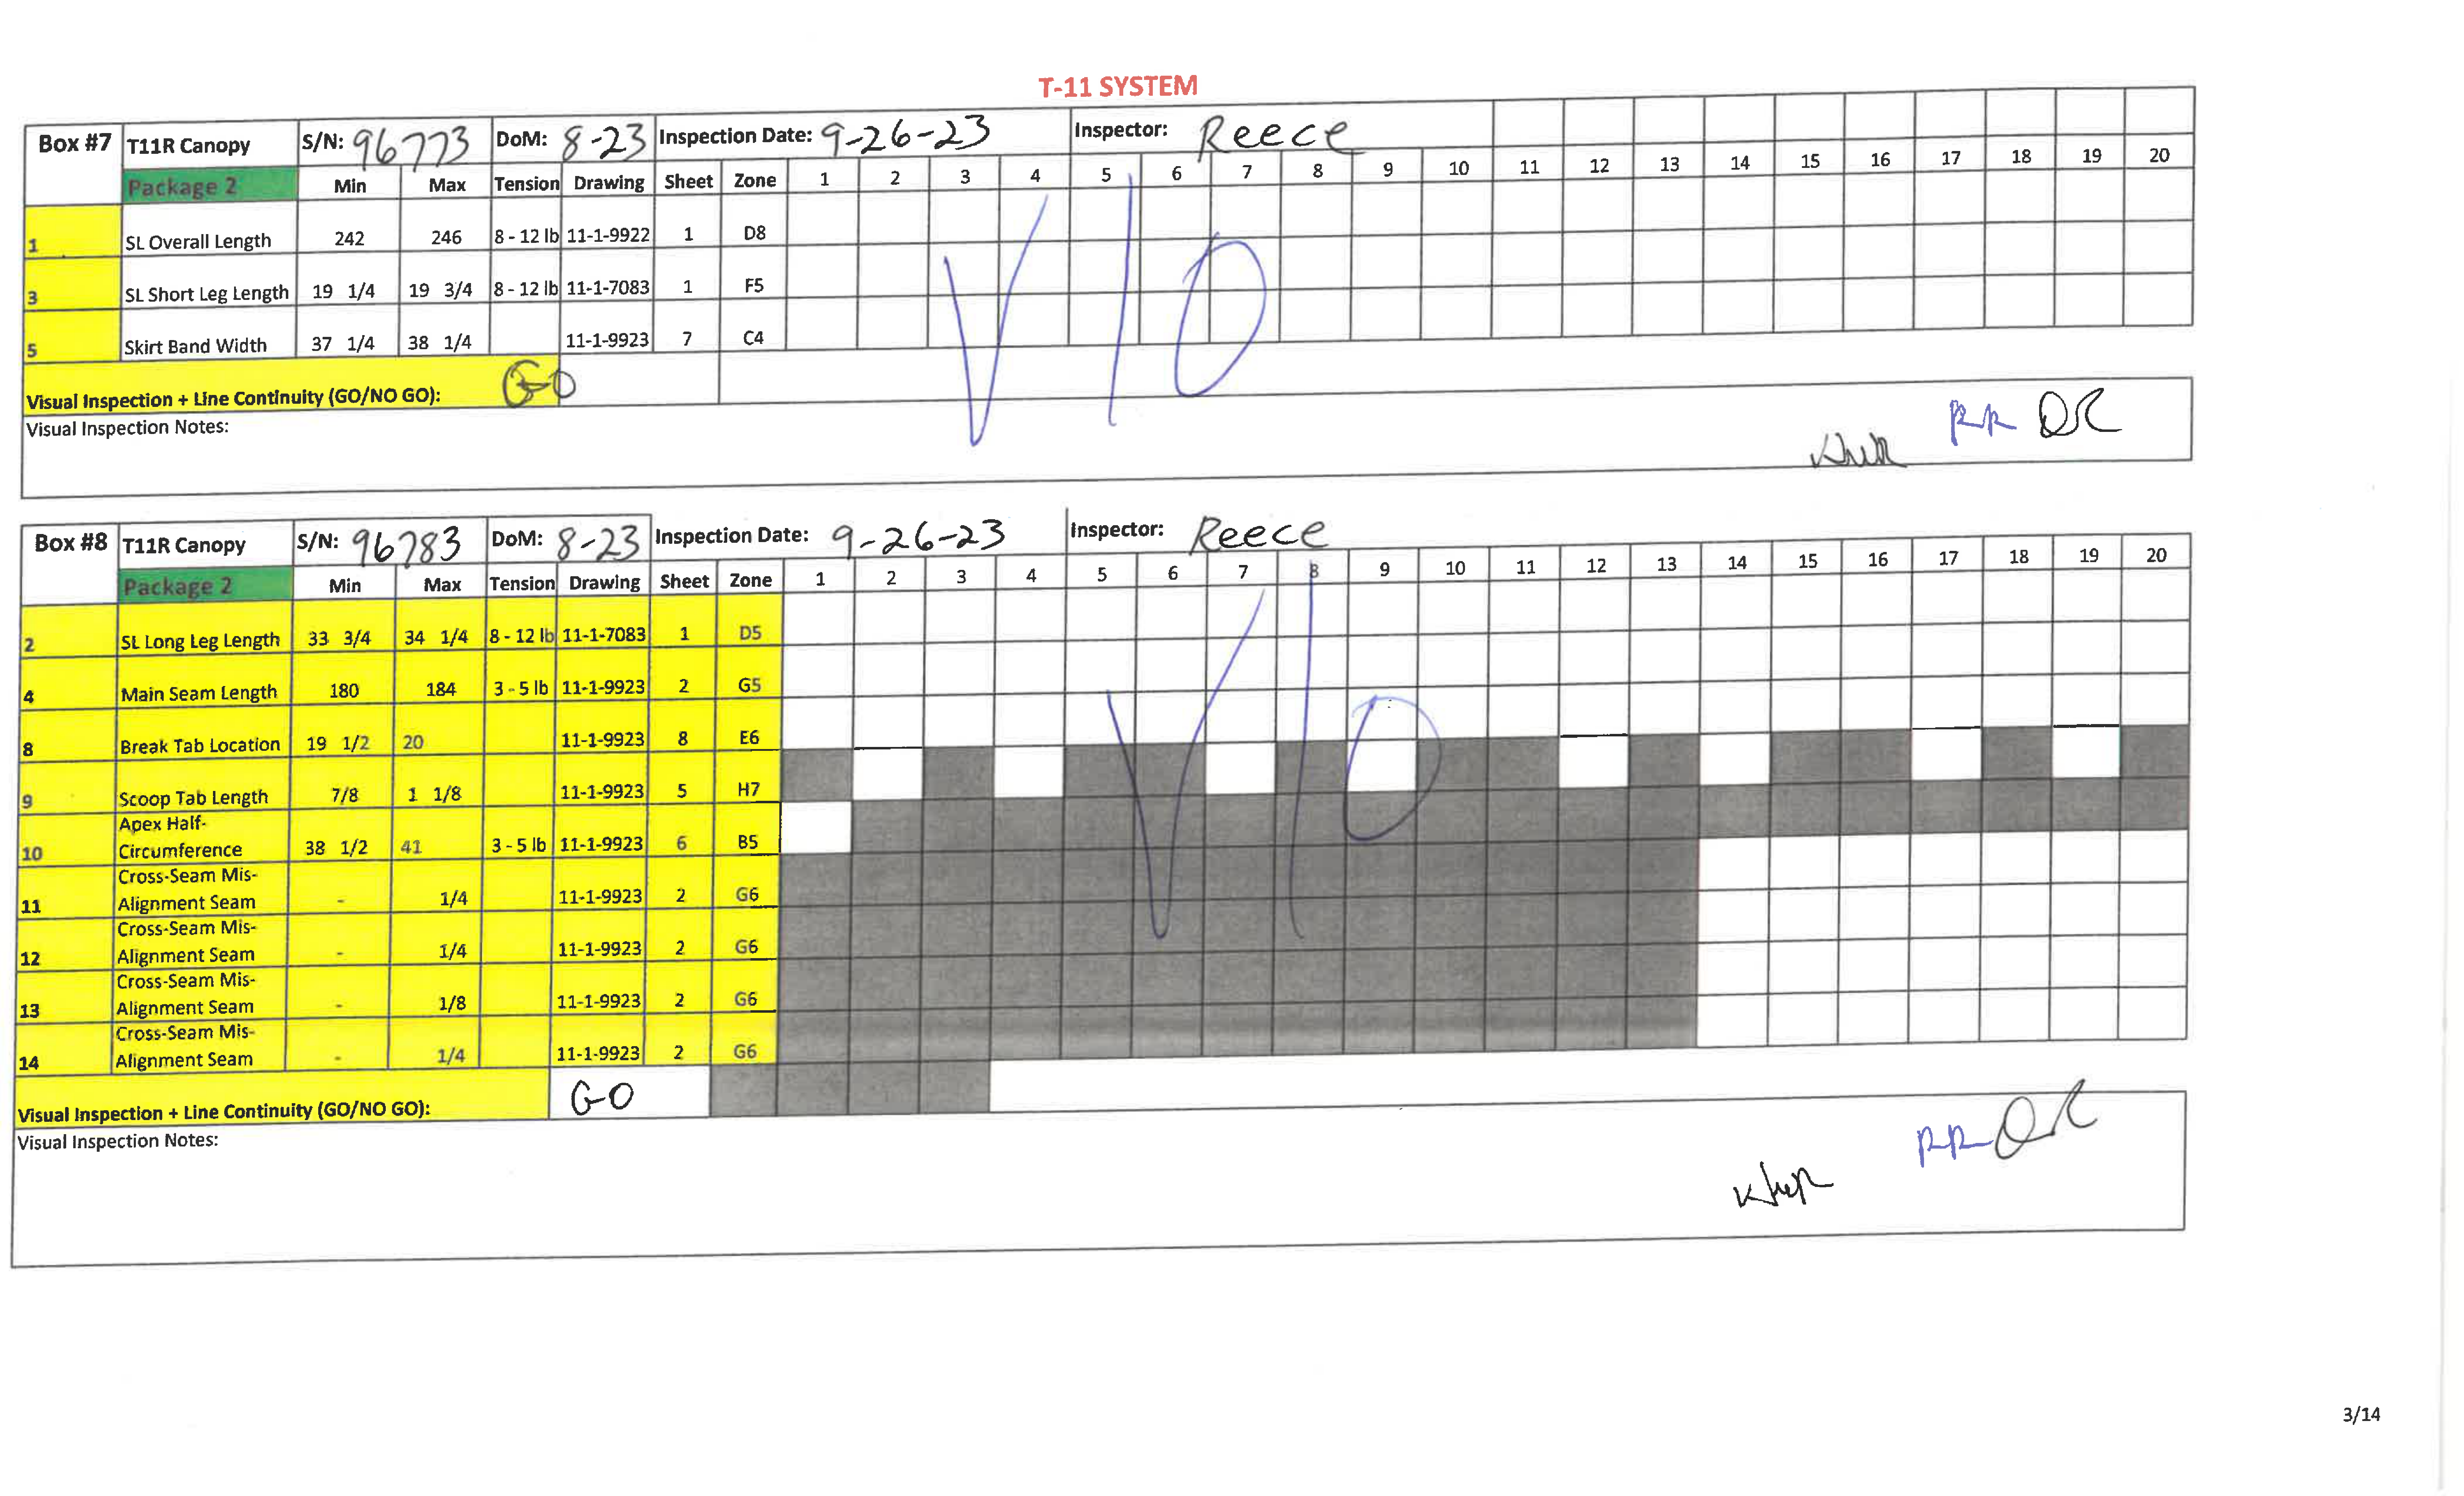 T-11 SYSTEM
Box #7 T11R Canopy S/N: 96773 DoM: 8-23 Inspection Date: 9-26-23 Inspector: Reece
Package 2 Min Max Tension Drawing Sheet Zone 1 2 3 4 5 6 7 8 9 10 11 12 13 14 15 16 17 18 19 20
1 SL Overall Length 242 246 8 - 12 lb 11-1-9922 1 D8
3 SL Short Leg Length 19 1/4 19 3/4 8 - 12 lb 11-1-7083 1 F5
5 Skirt Band Width 37 1/4 38 1/4 11-1-9923 7 C4
VIO
Visual Inspection + Line Continuity (GO/NO GO): GO
Visual Inspection Notes:
RR DR
Box #8 T11R Canopy S/N: 96783 DoM: 8-23 Inspection Date: 9-26-23 Inspector: Reece
Package 2 Min Max Tension Drawing Sheet Zone 1 2 3 4 5 6 7 8 9 10 11 12 13 14 15 16 17 18 19 20
2 SL Long Leg Length 33 3/4 34 1/4 8 - 12 lb 11-1-7083 1 D5
4 Main Seam Length 180 184 3 - 5 lb 11-1-9923 2 G5
8 Break Tab Location 19 1/2 20 11-1-9923 8 E6
9 Scoop Tab Length 7/8 1 1/8 11-1-9923 5 H7
Apex Half-
10 Circumference 38 1/2 41 3 - 5 lb 11-1-9923 6 B5
Cross-Seam Mis-
11 Alignment Seam - 1/4 11-1-9923 2 G6
Cross-Seam Mis-
12 Alignment Seam - 1/4 11-1-9923 2 G6
Cross-Seam Mis-
13 Alignment Seam - 1/8 11-1-9923 2 G6
Cross-Seam Mis-
14 Alignment Seam - 1/4 11-1-9923 2 G6
VIO
Visual Inspection + Line Continuity (GO/NO GO): GO
Visual Inspection Notes:
RR DR
3/14